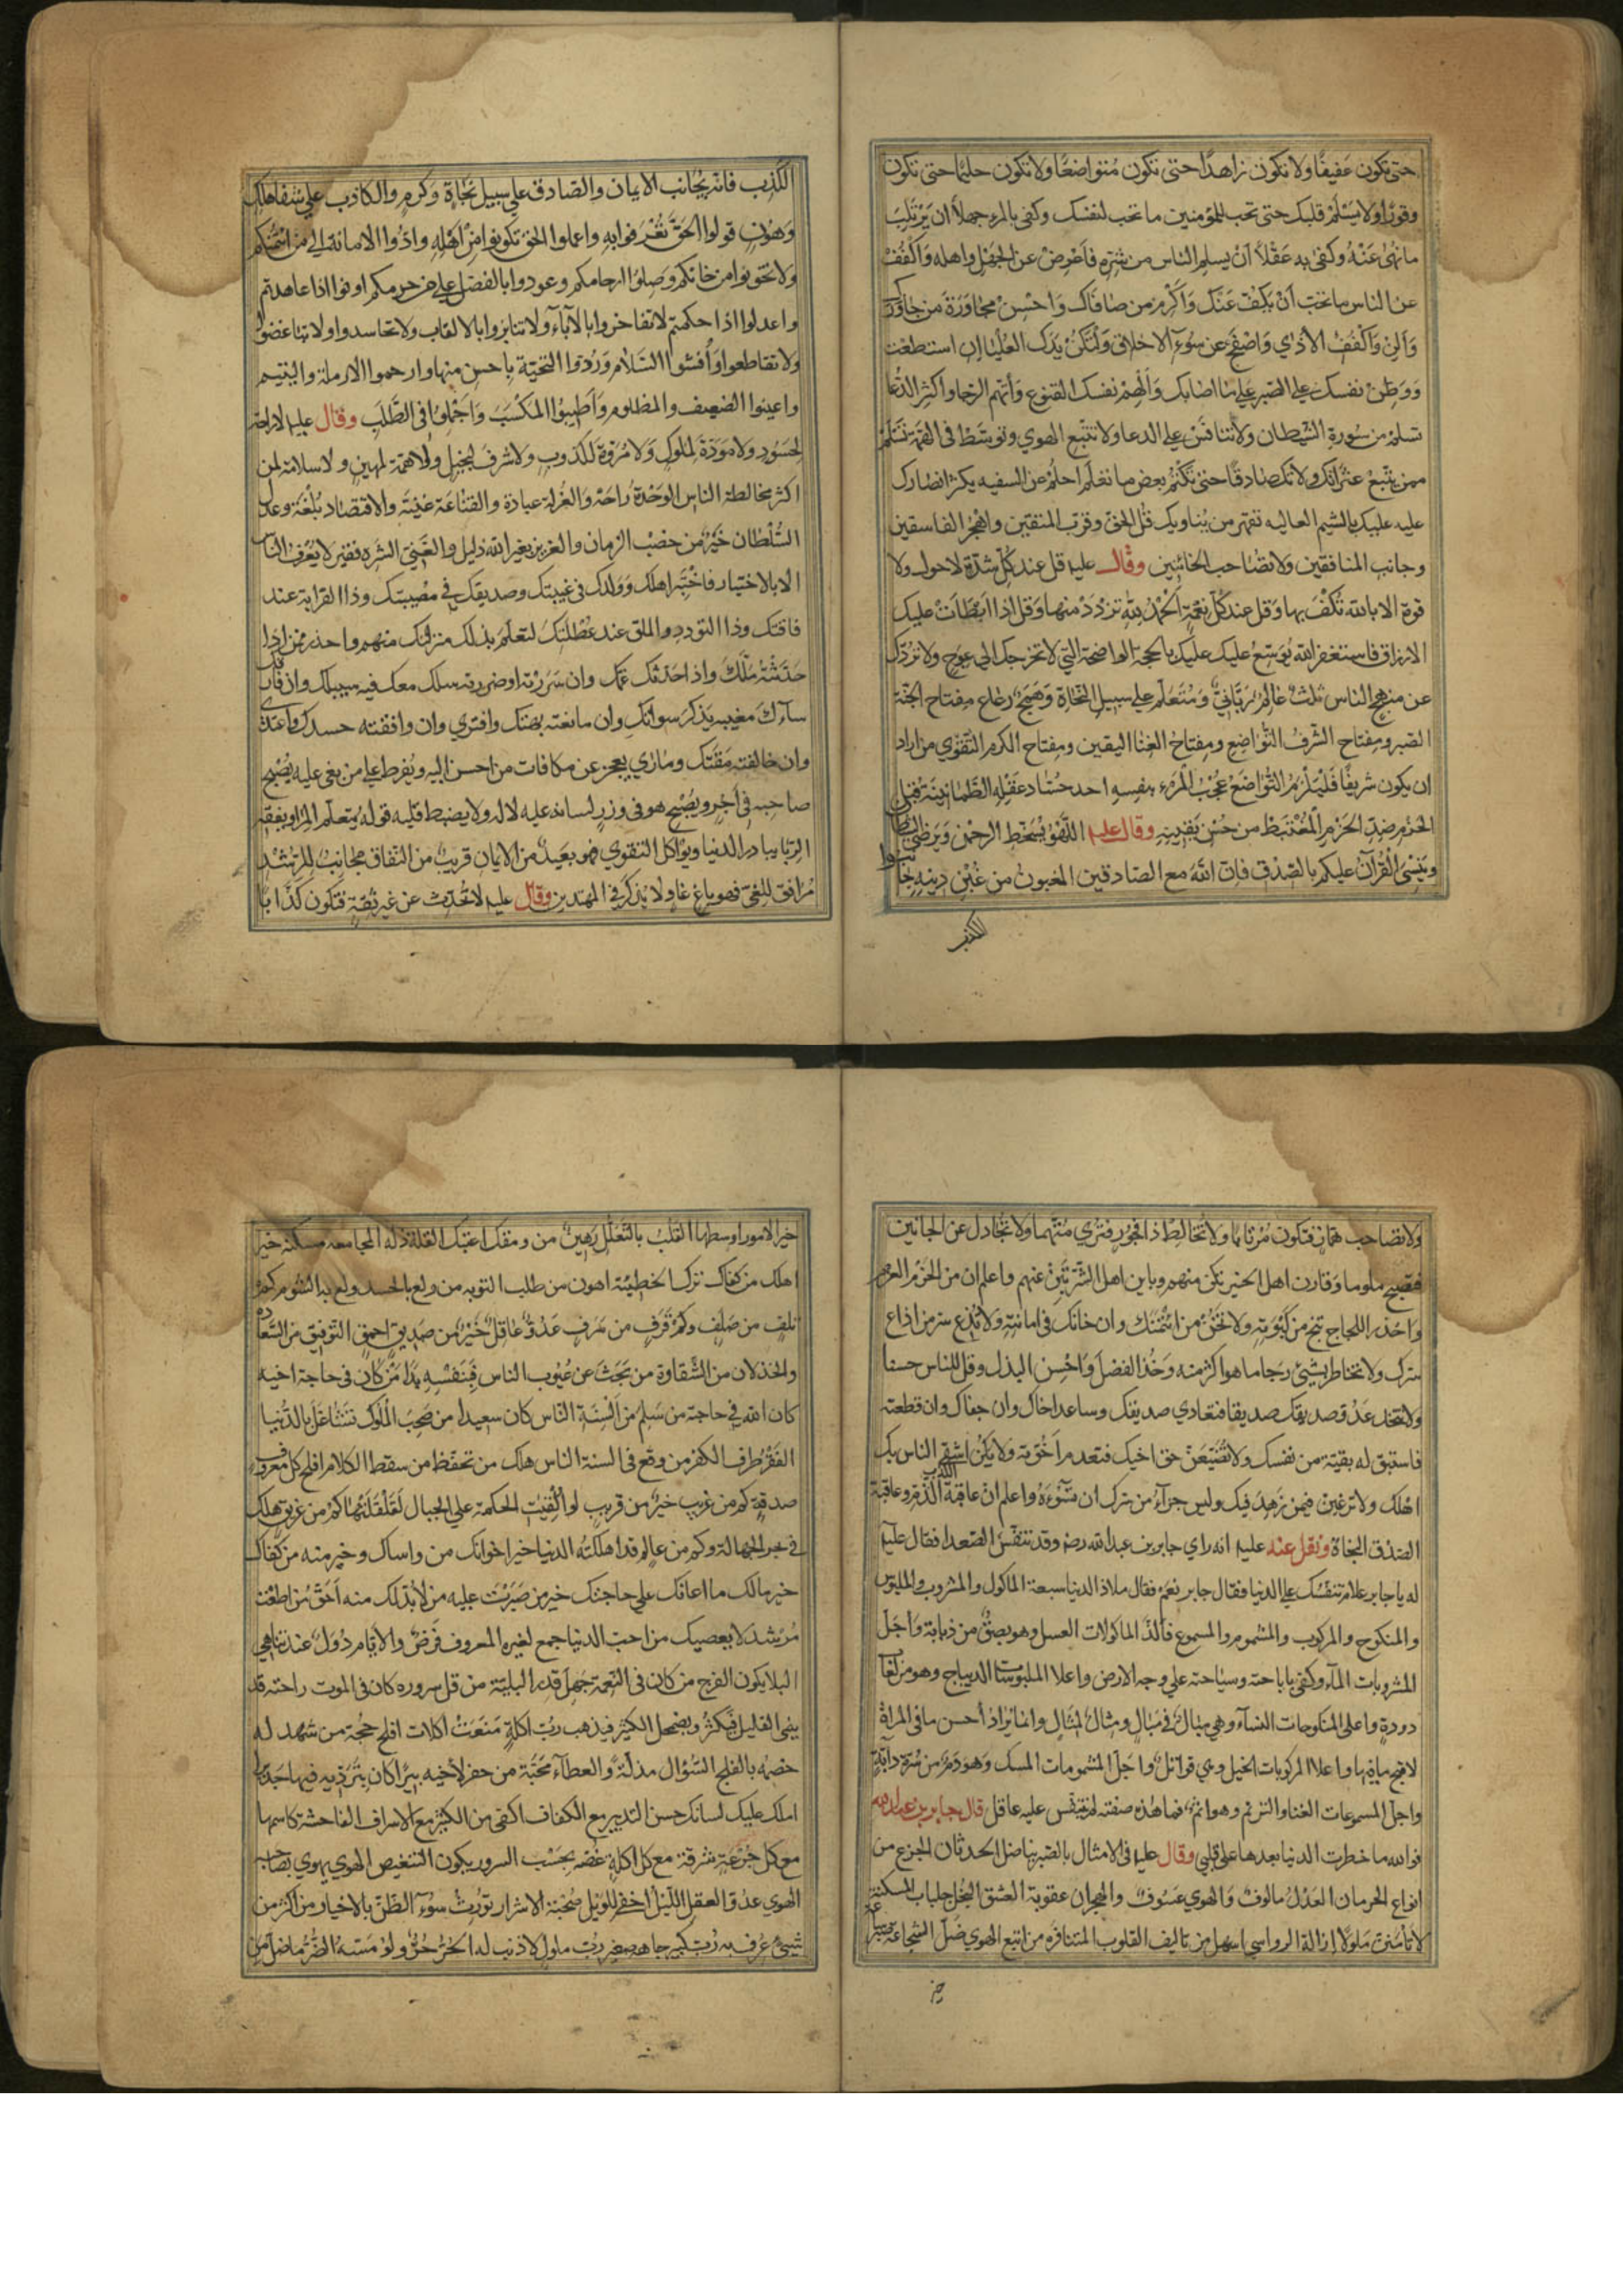 حتى تكون عفيفًا ولا تكون زاهدًا حتى تكون متواضعًا ولا تكون حليمًا حتى تكون
وقورًا ولا يسلم قلبك حتى تحب للمؤمنين ما تحب لنفسك وكفى بالمرء جهلًا ان يرتكب
ما نُهى عَنْهُ وكفى به عَقْلًا اَنْ يسلم الناس من شرّه فاَعْرِضْ عن الجَهْل واهله وَاكْفُفْ
عن الناس ما تحب اَنْ يُكَفَّ عَنْكَ وَاَكْرِمْ من صافاك وَاَحْسِنْ مجاورَةَ من جاورك
وَاَلِنْ وَاكْفُفْ الاذى وَاصْفَحْ عن سُوءِ الاخلاق وَلْتَكُنْ يَدَكَ العُلْيا ان استطعت
وَوَطِّنْ نفسك على الصّبر عَلى ما اصابك وَاَلْهِمْ نفسك القنوع وَاتّهم الرجا واكثر الدُّعا
تسلم من سَورةِ الشيطان ولا تنافَسْ على الدعا ولا تتّبع الهوى وتوسَّط فى الهمّة تسلم
ممن يَتّبعُ عثراتك ولا تك صادقًا حتى تكتُم بعض ما تعلم احلُمْ عن السفيه يكثر انصارك
عليه عليك بالشيم العاليه تقهر من يُناويك قل الحق وقرّب المتقين واهجُر الفاسقين
وجانب المنافقين ولا تصاحب الخائنين وقال عليه قل عند كُلّ شدّة لا حول ولا
قوة الا بالله تُكْفَ بها وقل عند كُلّ نِعْمَةٍ الْحَمْدُ لِلّهِ تزدَدْ منها وَقل اذا اَبْطَاَتْ عليك
الارزاق فاستغفر الله يُوَسّعْ عليك عليك بالحجة الواضحة التي لا تخرجك الى عوج ولا تردّك
عن منهج الناس ثلث عالِمٌ رَبّانيٌّ وَمُتَعلّم على سبيل النّجاة وَهَمَجٌ رعاع مفتاح الجنّة
الصّبر ومِفتاح الشّرفُ التّواضِع ومفتاحُ الغِنَا اليقين ومفتاح الكرم التّقوى من اراد
ان يكون شريفًا فَلْيَلْزَمُ التّواضعَ عُجْبُ المَرْءِ بنفسه احد حُسّاد عَقْله الطُّمَانِينَة قبل
الحَزْم ضد الحَزْم المُغْتَبِطُ من حُسْن يقينه وقال عليه اللّهْوُ يُسْخِطُ الرحمن وَيُرْضى الشيطان
ويُنْسى القُرآن عليكم بالصّدق فانّ اللهَ مع الصّادقين المغبون من غُبِنَ دِينَه جانبوا
الكذب
الكَذِب فانّه يُجانب الايمان والصّادق على سبيل نَجاةٍ وَكرمٍ والكاذب على شفا هلكٍ
وَهُونٍ قولوا الحَقّ تُعْرَفوا به واعملوا الحق تكونوا من اَهْلِه وادّوا الامانة الى من ائتَمنكم
ولا تخونوا من خانكم وَصِلُوا ارحامكم وعودوا بالفضل على من حرمكم اوفوا اذا عاهدتم
واعدلوا اذا حكمتم لا تفاخروا بالآباء ولا تنابزوا بالالقاب ولا تحاسدوا ولا تباغضوا
ولا تقاطعوا وَاُفشُوا السّلام وَرُدّوا التحيّة باحسن منها وارحموا الارملة واليتيم
واعينوا الضعيف والمظلوم وَاَطيبُوا المكْسَبَ وَاَجْمِلُوا فى الطَّلَبِ وقال عليه لا راحة
لحَسُود ولا مودّة لملوك وَلا مُرُوّة للكذوب ولا شَرفَ لبخيل ولا همّة لمهين ولا سلامة لمن
اكثر مخالطة الناس الوَحْدَة راحَة وَالعُزلة عبادة والقناعَة غنيَة والاقتصاد بُلغة وعدل
السُّلْطان خَيْرٌ من خصْب الزمان والعزيز بغير الله ذليل والغَنيّ الشره فقير لا يُعْرف الناس
الا بالاختيار فاخْتَبِر اهلك وَوَلدك فى غيبتك وصديقك في مصيبتك وذا القرابة عند
فاقتك وذا التودد والملق عند عُطْلَتِكَ لتعلَم بذلك منزلتك منهم واحذر ممن اذا
حَدّثْتُه مَلّكَ واذا حَدّثك غمّك وان سَرَرْته او ضررته سلك معك فيه سبيلك وان فارقك
ساءكَ مغيبه بذكر سواتك وان مانعته بهتك وافترى وان وافقته حسدك واعتدى
وان خالفته مَقَتك ومارى يعجز عن مكافات من احسن اليه ويُفرط على من بغى عليه يُصْبح
صاحبه فى اجْرٍ ويُصْبح هو فى وزرٍ لسانه عليه لا له ولا يضبط قلبه قوله يُتعلّم للمراء ويفقه
الريا يبادر الدنيا ويواكل التقوى فهو بعيدٌ من الايمان قريبٌ من النّفاق مجانبٌ للرُشْدِ
مُرافق للغىّ فهو باغٍ غاوٍ لا يذكر فى المهتدين وقال عليه لا تُحَدِّث عن غير ثقةٍ فتكون كذّابًا
ولا تصاحب همّازا فتكون مُرْتابًا ولا تُخالِطْ ذا فجورٍ فترى مُتّهمًا ولا تجادل عن الخائنين
فتصبح ملوما وَقارن اهل الخير تكن منهم وباين اهل الشّر تَبِنْ عنهم واعلم ان من الحَزْم العزم
وَاحْذر اللجاج تنج من كَبْوَته ولا تَخُنْ من ائتَمَنَكَ وان خانك فى امانته ولا تُذع سر من اذاع
سرّك ولا تخاطر بشىءٍ رجا ما هو اكثر منه وَخُذ الفضلَ وَاَحْسِنِ البذل وقل للناس حسنا
ولا تتخذ عَدُوّ صديقك صديقا فتعادى صديقك وساعد اخاك وان جفاك وان قطعته
فاستبق له بقيّة من نفسك ولا تُضَيّعَنّ حق اخيك فتعدم اخُوّته وَلا يكن اشقى الناس بك
اهْلك ولا ترغبن فيمن زَهِدَ فيك وليس جزآء من سَرّك ان تسُوءه واعلم ان عاقبة الكذب الذّم وعاقبة
الصّدق النجاة ونقل عنه عليه انه راى جابر بن عبد الله رضه وقد تنفّسَ الصّعدا فقال عليه
له يا جابر علامَ تَنفُّسك على الدنيا فقال جابر نعَم فقال ملاذ الدنيا سبعة الماكول والمشروب والملبوس
والمنكوح والمركوب والمشموم والمسموع فاَلَذّ الماكولات العسل وهو بصقٌ من ذبابة وَاَجَلّ
المشروبات المآء وكفى باباحته وسباحته على وجه الارض واعلا الملبوسات الديباج وهو من لعاب
دودةٍ واعلى المنكوحات النسآء وهى مبالٌ فى مبالٍ ومثالٌ لمثالٍ وانما يُرادُ أحسن ما فى المراة
لاقبح ما فيها واعلا المركوبات الخيل وهى قواتلٌ واَجَلّ المشمومات المسك وَهو دَمٌ من سُرّة دابّةٍ
واجلّ المسموعات الغنا والترنم وهو اثمٌ فما هذه صفته لم يتنفّس عليه عاقل قال جابر بن عبد الله
فوالله ما خطرت الدنيا بعدها على قلبى وقال عليه فى الامثال بالصّبر يناضل الحدثان الجزع من
انواع الحرمان العَدْلُ مالوفٌ وَالهوى عَسُوفٌ والهجران عقوبة العشق البُخْل جلباب المسكنة
لا تاْمَنَنّ مَلولًا ازالة الرواسى اسهل من تاليف القلوب المتنافره من اتبع الهوى ضَلّ الشجاعة صبر ساعة
خير
خير الامور اوسطها القلبُ بالتَّعلُّل رَهينٌ من ومقك اعتبك القلة ذلة المجاعه مسكنه خير
اهلك من كفاك ترك الخطيئة اهون من طلب التوبه من ولع بالحسد ولع به الشوم كم
تلف من صَلِف وكم قَرف من سَرفٍ عَدُوٌّ عاقلٌ خَيْرٌ من صديقٍ احمقٍ التّوفيق من السَّعادة
والخذلان من الشّقاوة من بَحَثَ عن عُيُوب الناس فَبِنَفْسِه بَدَا مَنْ كان فى حاجة اخيه
كان الله فى حاجته من سَلِمَ من اَلسِنَةِ النّاس كان سعيدا من صَحِبَ الملُوك تشاغَلَ بالدّنيا
الفَقْرُ طرف الكفر من وقع فى السنة الناس هلك من تحفّظ من سقط الكلام افلح كل معروف
صدقةٍ كم من غريب خيرٌ من قريبٍ لو اُلْقِيَتِ الحكمة على الجبال لَقَلْقَلَتْها كم من غريق هلك
فى بحر الجهالة وكم من عالمٍ قد اهلكته الدنيا خير اخوانك من واساك وخير منه من كفاك
خير مالك ما اعانك على حاجتك خير من صَبَرْتَ عليه من لابُدّ لك منه اَحَقّ من اطعْتَ
مُرْشد لا يعصيك من احبّ الدنيا جمع لغيره المعروف فَرضٌ والايّام دُوَلٌ عند تناهى
البلا يكون الفرج من كان فى النّعمة جَهِلَ قدر البليّة من قل سروره كان فى الموت راحته قد
ينمى القليل فيكثُر ويضمحل الكثير فيذهب رُبّ اكلةٍ مَنَعَتْ اكلات افلح حجّة من شهد له
خصمُه بالفلج السّؤال مذلّةٌ والعطاء مَحَبّة من حفر لاخيه بيرًا كان بترَدّيه فيها جديرًا
املك عليك لسانك حسن التدبير مع الكفاف اكفى من الكثير مع الاسراف الفاحشة كاسمها
مع كل جُرْعَةٍ شرقة مع كل اكلةٍ غصّه بحَسْبِ السرور يكون التنغيص الهوى يهوى بصاحبه
الهوى عدُوّ العقل اللّيْلُ اخفر للويل صُحْبَة الاشرار تُورِثُ سُوءَ الظّنّ بالاخيار من اكثر من
شَيْءٍ عُرفَ به رُبّ كبيرٍ جاهد صغير رُبّ ملوم لا ذنب له الحُرّ حُرٌّ ولَوْ مَسّهُ الضُّرُّ ما ضلّ من